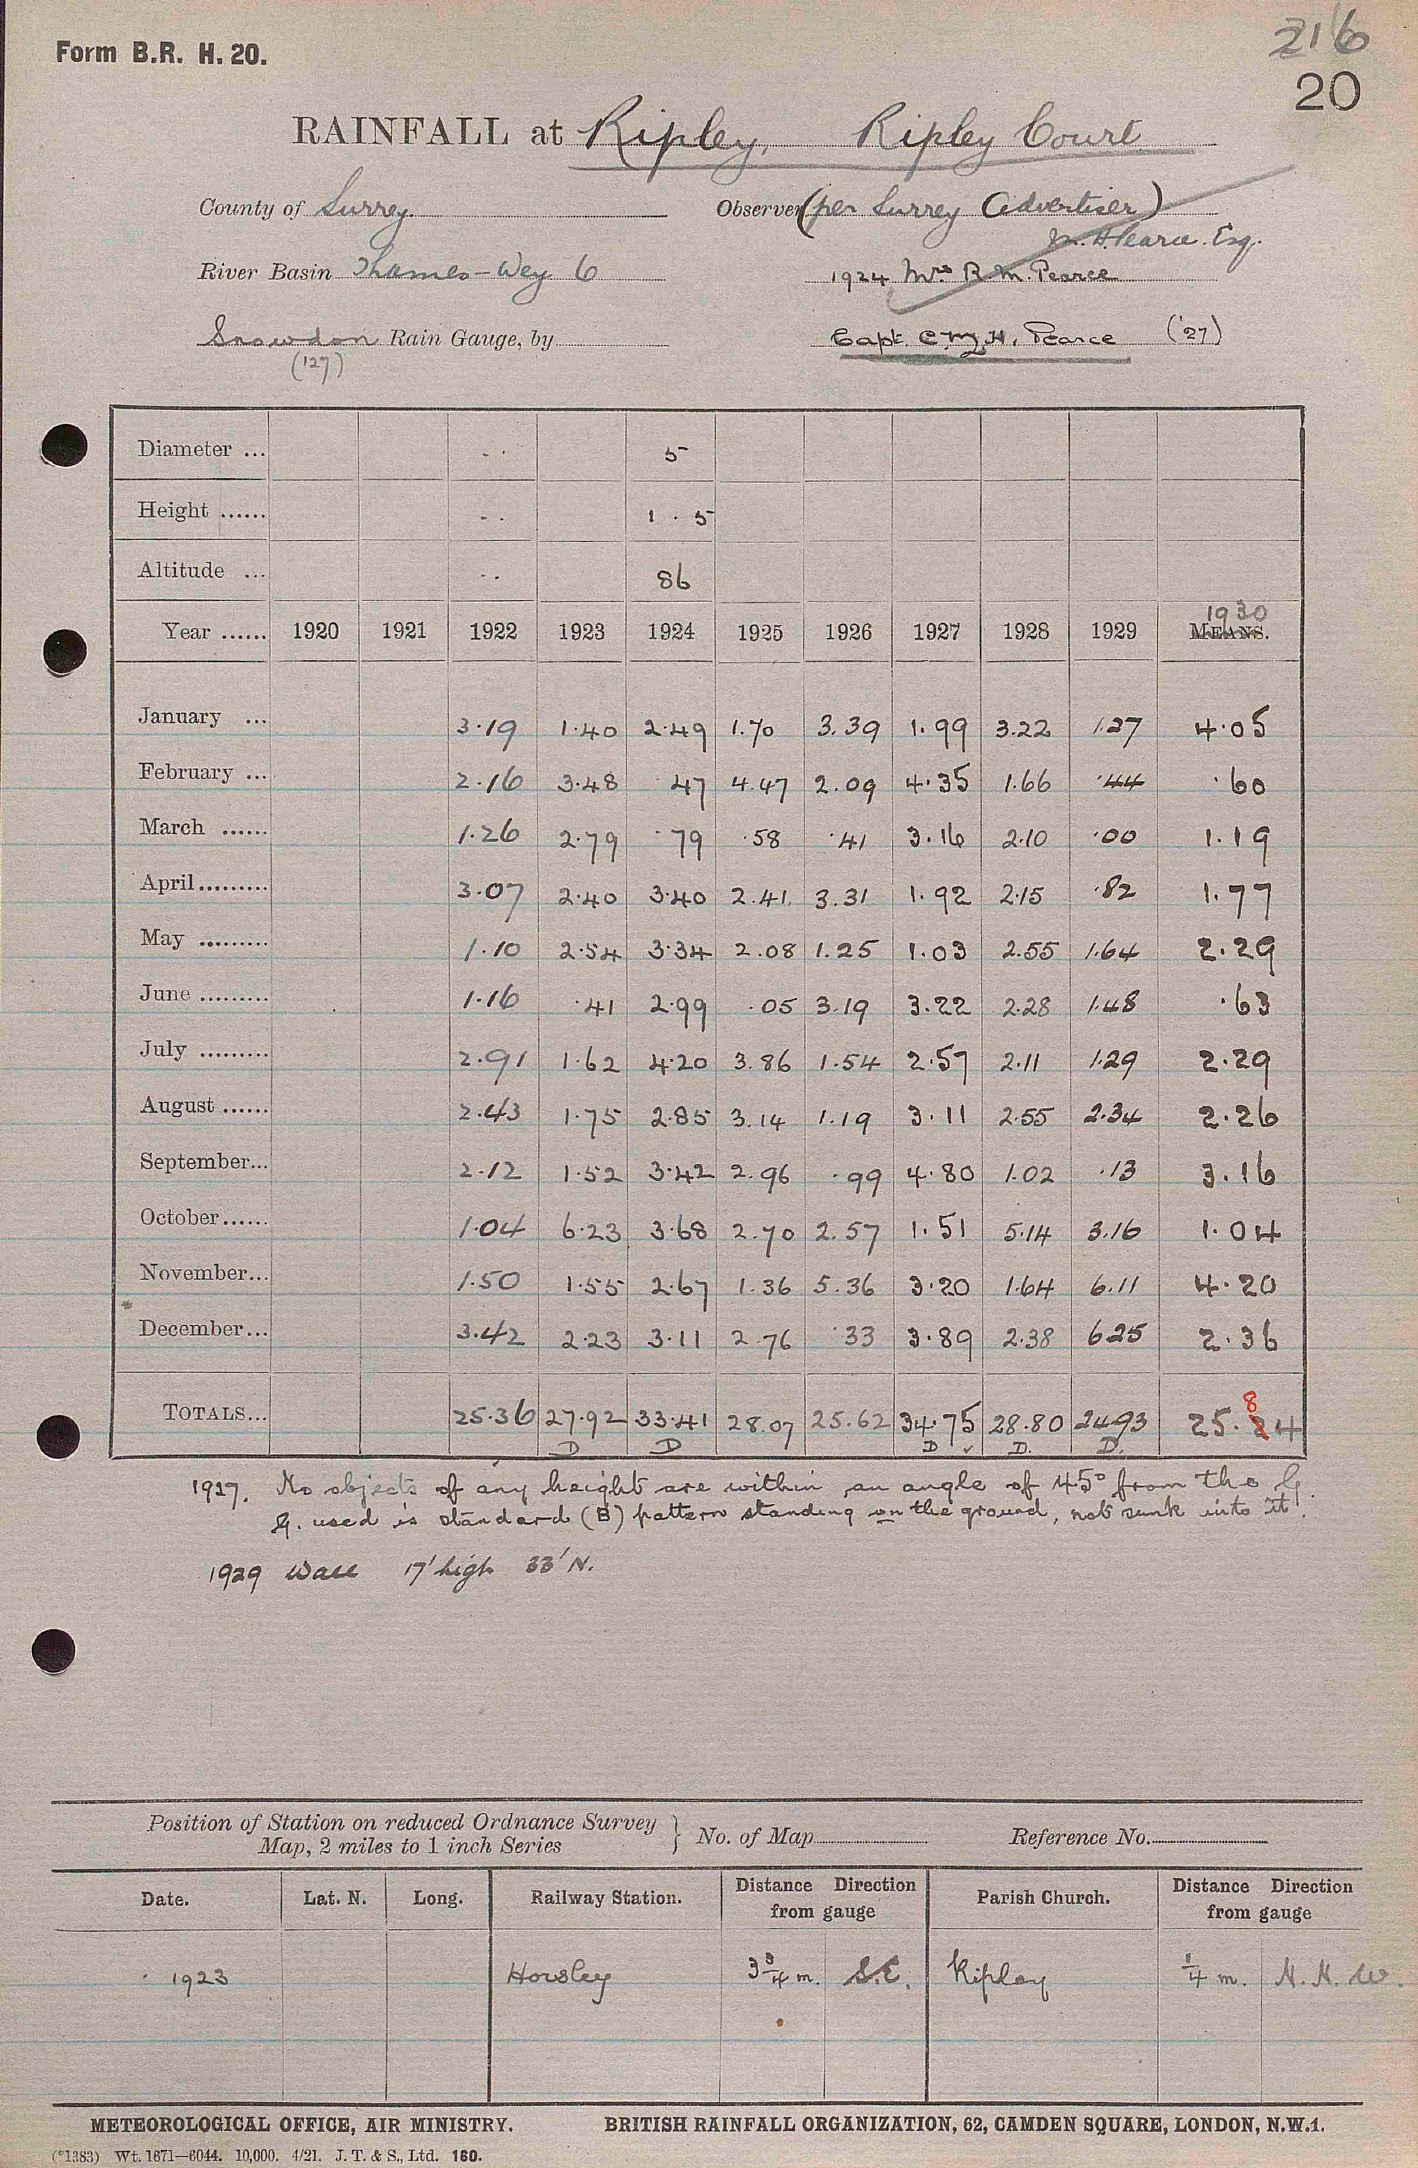 Form B.R. H. 20.
216
20
RAINFALL at Ripley, Ripley Court
County of Surrey. Observer (per Surrey Advertiser)
M. H. Pearce. Esq.
River Basin Thames-Wey 6 1924 Mrs B. M. Pearce
Snowdon Rain Gauge, by Capt. C. M. H. Pearce ('27)
('27)
Diameter ... - - 5
Height ...... - - 1 . 5
Altitude ... - - 86
1930
Year ...... 1920 1921 1922 1923 1924 1925 1926 1927 1928 1929 MEANS.
January ... 3.19 1.40 2.49 1.70 3.39 1.99 3.22 1.27 4.05
February ... 2.16 3.48 .47 4.47 2.09 4.35 1.66 .44 .60
March ...... 1.26 2.79 .79 .58 .41 3.16 2.10 .00 1.19
April ......... 3.07 2.40 3.40 2.41 3.31 1.92 2.15 .82 1.77
May ......... 1.10 2.54 3.34 2.08 1.25 1.03 2.55 1.64 2.29
June ......... 1.16 .41 2.99 .05 3.19 3.22 2.28 1.48 .63
July ......... 2.91 1.62 4.20 3.86 1.54 2.57 2.11 1.29 2.29
August ...... 2.43 1.75 2.85 3.14 1.19 3.11 2.55 2.34 2.26
September... 2.12 1.52 3.42 2.96 .99 4.80 1.02 .13 3.16
October...... 1.04 6.23 3.68 2.70 2.57 1.51 5.14 3.16 1.04
November... 1.50 1.55 2.67 1.36 5.36 3.20 1.64 6.11 4.20
December... 3.42 2.23 3.11 2.76 .33 3.89 2.38 6.25 2.36
8
TOTALS... 25.36 27.92 33.41 28.07 25.62 34.75 28.80 24.93 25.24
D D D ✓ D. D.
1927. No objects of any height are within an angle of 45° from the G.
G. used is standard (B) pattern standing on the ground, not sunk into it.
1929 Wall 17' high 33' N.
Position of Station on reduced Ordnance Survey
Map, 2 miles to 1 inch Series } No. of Map Reference No.
Date. Lat. N. Long. Railway Station. Distance Direction from gauge Parish Church. Distance Direction from gauge
1923 Horsley 3 3/4 m. S.E. Ripley 1/4 m. N. N. W.
METEOROLOGICAL OFFICE, AIR MINISTRY. BRITISH RAINFALL ORGANIZATION, 62, CAMDEN SQUARE, LONDON, N.W.1.
(*1383) Wt. 1671—6044. 10,000. 4/21. J. T. & S., Ltd. 160.